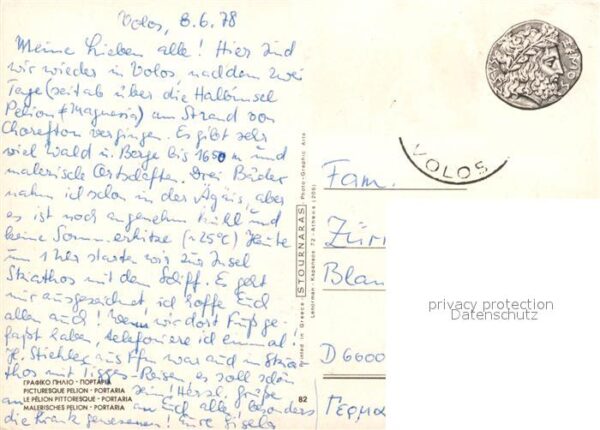 Volos, 8.6.78
Meine Lieben alle! Hier sind
wir wieder in Volos, nachdem zwei
Tage (seitab über die Halbinsel
Pelion Magnesia) am Strand von
Chorefton vergingen. Es gibt sehr
viel Wald u. Berge bis 1650 m und
malerische Ortschaften. Drei Bäder
nahm ich schon in der Ägäis, aber
es ist noch angenehm kühl und
keine Sommerhitze (~25°C) Heute
um 1 Uhr starten wir zur Insel
Skiathos mit dem Schiff. Es geht
mir ausgezeichnet, ich hoffe Euch
allen auch! Wenn wir dort Fuß ge-
faßt haben, telefoniere ich einmal.
H. aus Ffm war auch in Skia-
thos mit Reisen, es soll schön
sein! Herzl. Grüße
an Euch alle, besonders
die Krank gewesenen! Eure Gisela
ΓΡΑΦΙΚΟ ΠΗΛΙΟ - ΠΟΡΤΑΡΙΑ
PICTURESQUE PELION - PORTARIA
LE PÉLION PITTORESQUE - PORTARIA
MALERISCHES PELION - PORTARIA
82
Printed in Greece STOURNARAS Photo-Graphic Arts
Lenorman - Kapaneos 72 - Athens (205)
VOLOS
Fam.
Zür
Blan
D 6000
Γερμα
privacy protection
Datenschutz